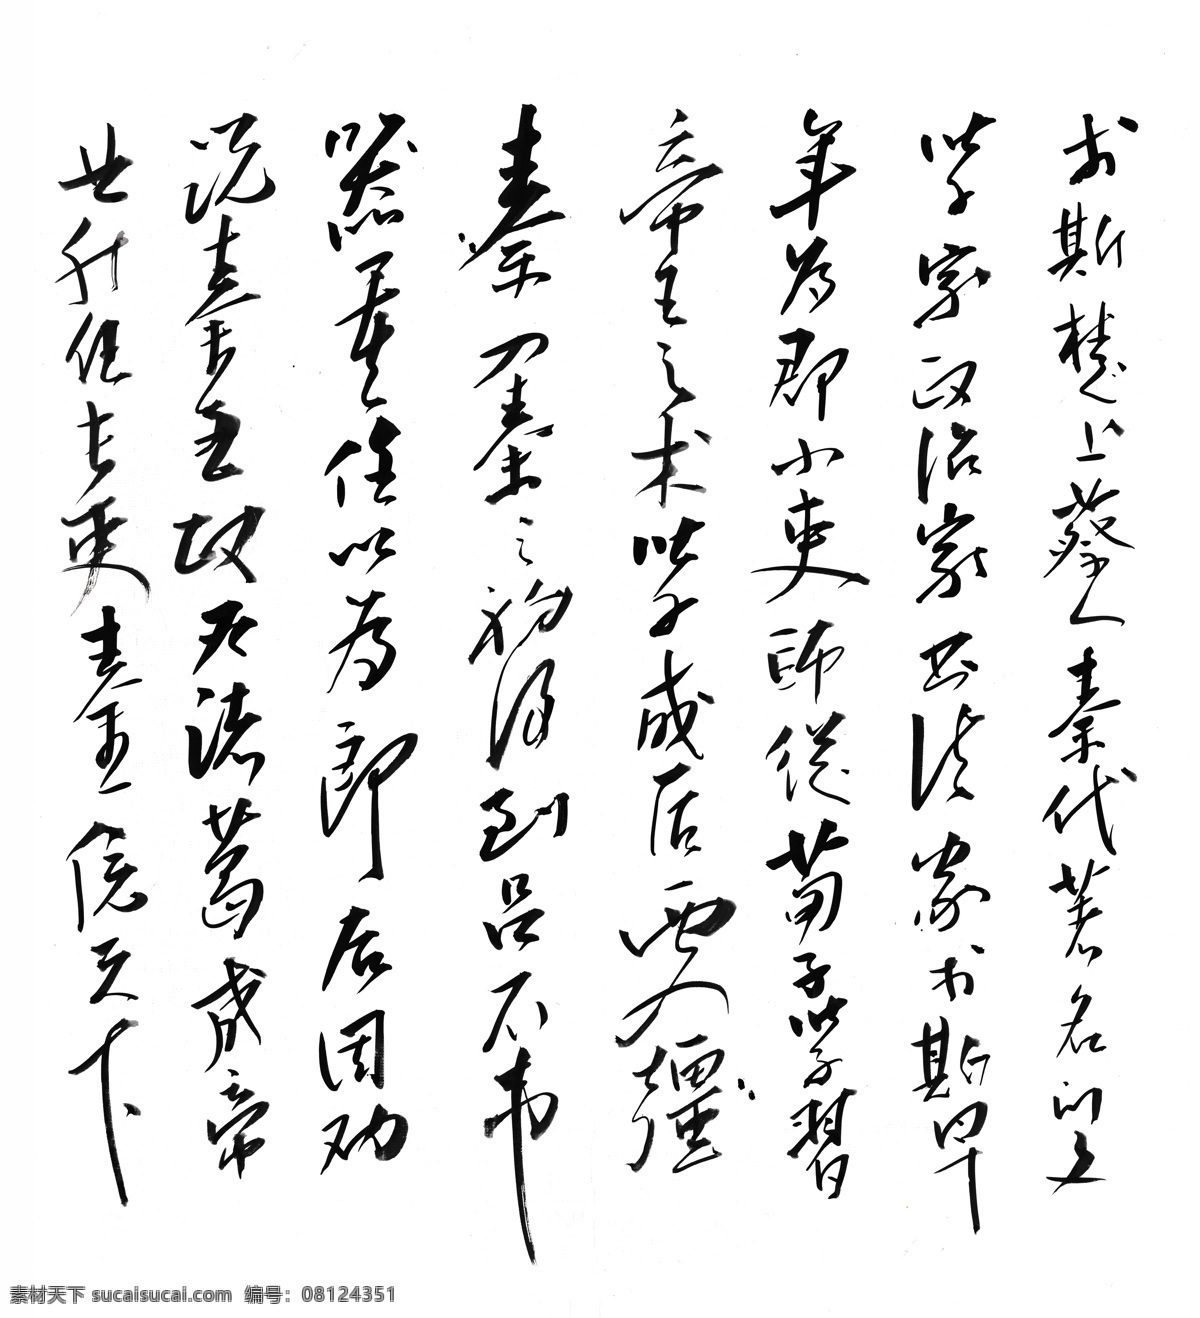 李斯楚上蔡人秦代著名的文
学家政治家书法家李斯早
年为郡小吏师从荀子学习
帝王之术学成后西入疆
秦秦之初得到吕不韦
器重任以为郎后因劝
说秦王政灭诸葛成帝
业升任长吏秦王天下
素材天下 sucaisucai.com 编号：08124351